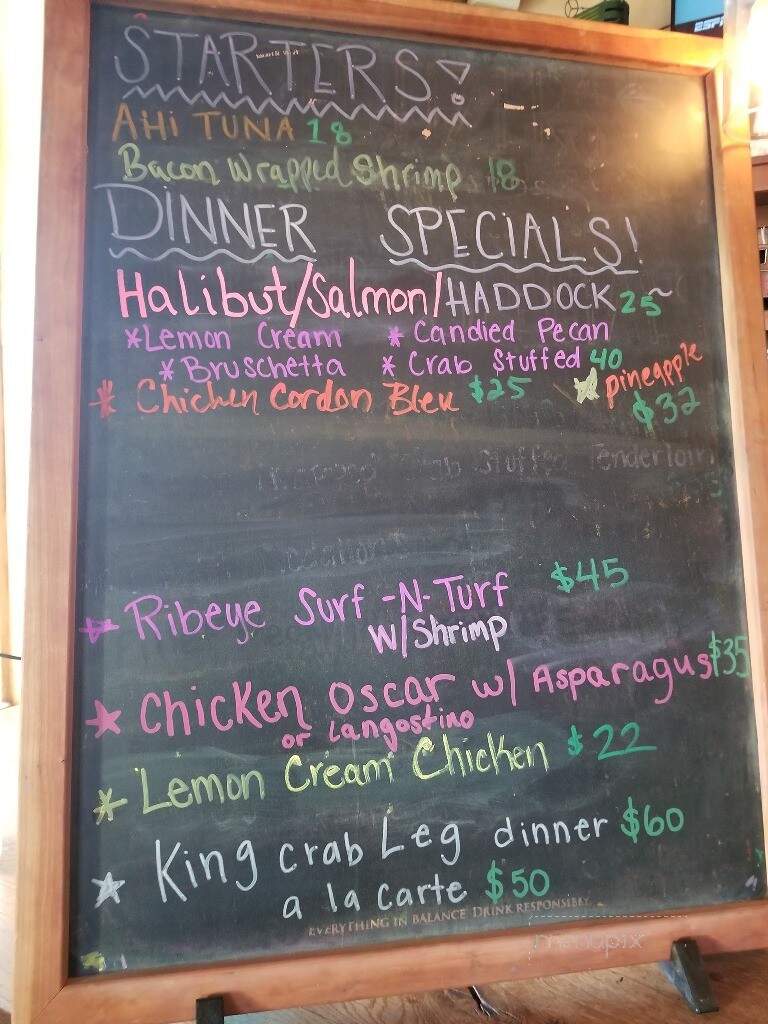 ESPN
STARTERS!
AHI TUNA 18
Bacon Wrapped Shrimp 18
DINNER SPECIALS!
Halibut/Salmon/HADDOCK 25~
*Lemon Cream * Candied Pecan
* Bruschetta * Crab Stuffed 40
* Chicken Cordon Bleu $25
pineapple
$32
Stuffed Tenderloin
* Ribeye Surf -N- Turf $45
W/Shrimp
* Chicken Oscar w/ Asparagus $35
or Langostino
* Lemon Cream Chicken $22
* King crab Leg dinner $60
a la carte $50
EVERYTHING IN BALANCE DRINK RESPONSIBLY.
menupix